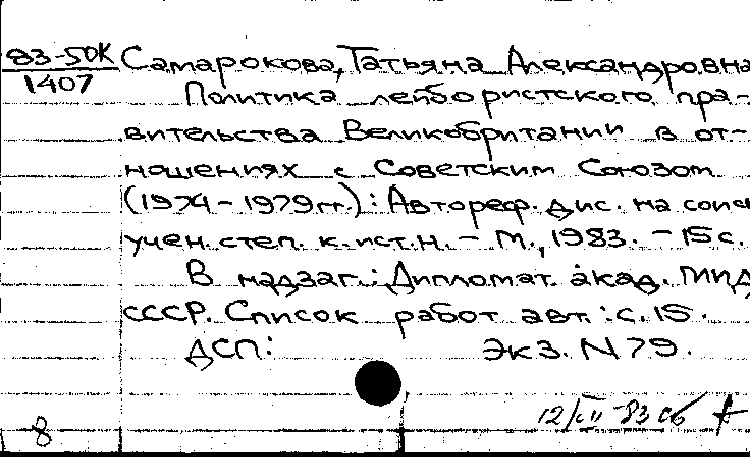 83-50К Самарокова, Татьяна Александровна
1407
Политика лейбористского пра-
вительства Великобритании в от-
ношениях с Советским Союзом
(1974-1979гг.): Автореф. дис. на соиск
учен. степ. к. ист. н. - М., 1983. - 15 с.
В надзаг.: Дипломат. акад. МИД
СССР. Список работ авт.: с. 15.
ДСП: Экз. N 79.
8